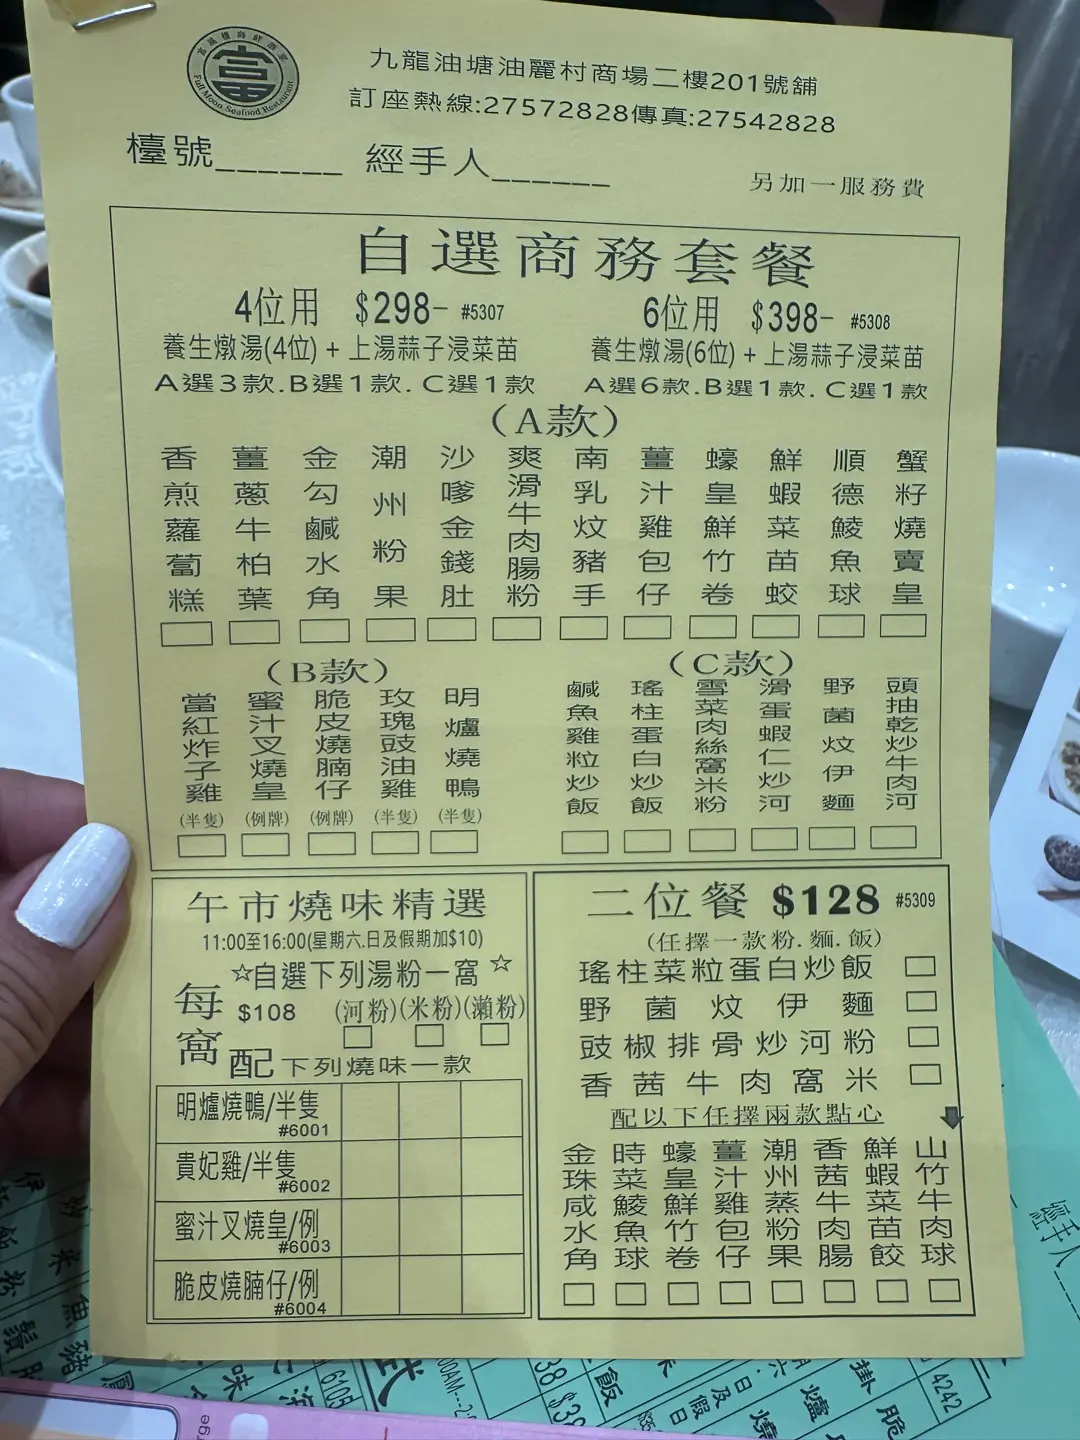 富滿樓海鮮酒家
Full Moon Seafood Restaurant
九龍油塘油麗村商場二樓201號舖
訂座熱線:27572828傳真:27542828
檯號______ 經手人______
另加一服務費
自選商務套餐
4位用 $298- #5307
養生燉湯(4位) + 上湯蒜子浸菜苗
A選3款.B選1款.C選1款
6位用 $398- #5308
養生燉湯(6位) + 上湯蒜子浸菜苗
A選6款.B選1款.C選1款
(A款)
香煎蘿蔔糕
薑蔥牛柏葉
金勾鹹水角
潮州粉果
沙嗲金錢肚
爽滑牛肉腸粉
南乳炆豬手
薑汁雞包仔
蠔皇鮮竹卷
鮮蝦菜苗餃
順德鯪魚球
蟹籽燒賣皇
(B款)
當紅炸子雞(半隻)
蜜汁叉燒皇(例牌)
脆皮燒腩仔(例牌)
玫瑰豉油雞(半隻)
明爐燒鴨(半隻)
(C款)
鹹魚雞粒炒飯
瑤柱蛋白炒飯
雪菜肉絲窩米粉
滑蛋蝦仁炒河
野菌炆伊麵
頭抽乾炒牛肉河
午市燒味精選
11:00至16:00(星期六.日及假期加$10)
☆自選下列湯粉一窩☆
每窩 $108 (河粉)(米粉)(瀨粉)
配下列燒味一款
明爐燒鴨/半隻 #6001
貴妃雞/半隻 #6002
蜜汁叉燒皇/例 #6003
脆皮燒腩仔/例 #6004
二位餐 $128 #5309
(任擇一款粉.麵.飯)
瑤柱菜粒蛋白炒飯
野菌炆伊麵
豉椒排骨炒河粉
香茜牛肉窩米
配以下任擇兩款點心
金珠咸水角
時菜鯪魚球
蠔皇鮮竹卷
薑汁雞包仔
潮州蒸粉果
香茜牛肉腸
鮮蝦菜苗餃
山竹牛肉球
4242
6105